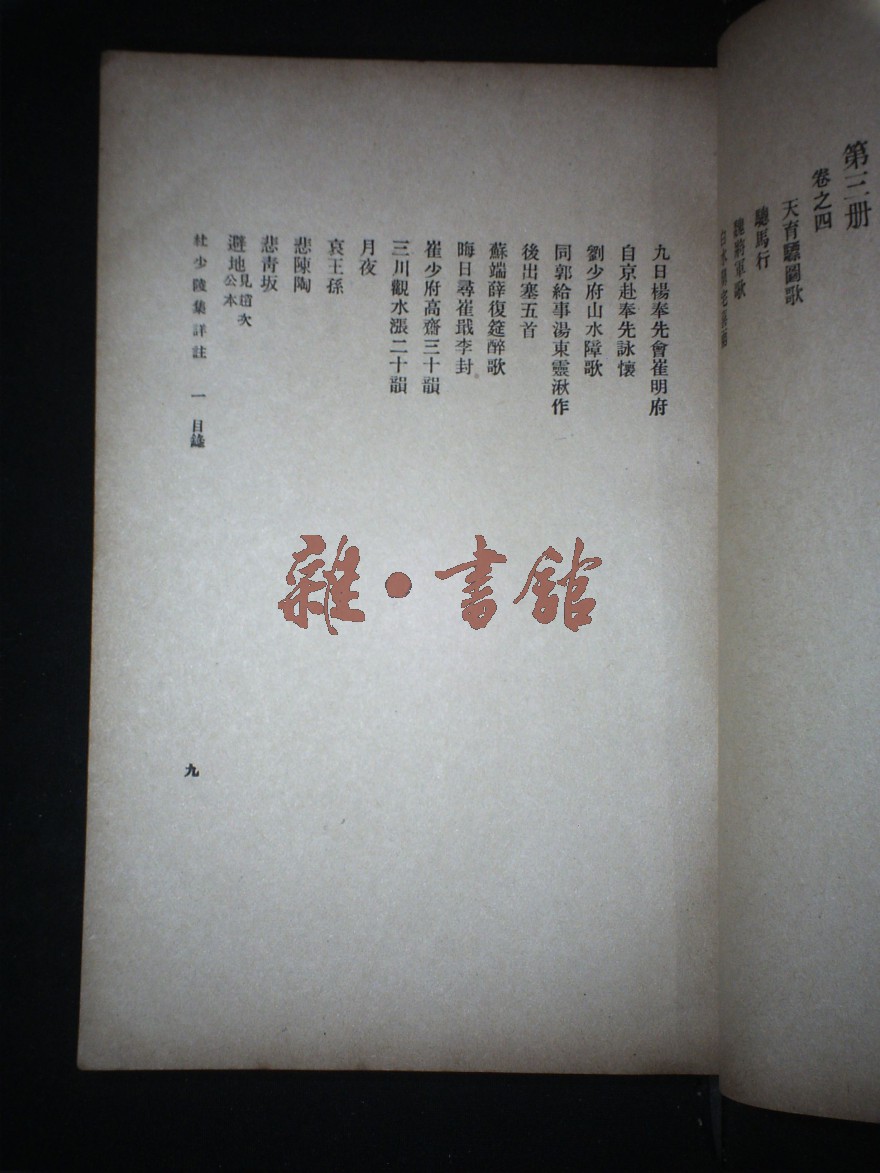 第三册
卷之四
天育驃圖歌
驄馬行
魏將軍歌
九日楊奉先會崔明府
自京赴奉先詠懷
劉少府山水障歌
同郭給事湯東靈湫作
後出塞五首
蘇端薛復筵醉歌
晦日尋崔戢李封
崔少府高齋三十韻
三川觀水漲二十韻
月夜
哀王孫
悲陳陶
悲青坂
避地見趙次公本
杜少陵集詳註 一 目錄
九
雜·書館